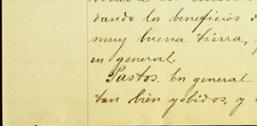 dando los beneficios d
muy buena tierra, y
en general.
Pastos. En general
tan bien y